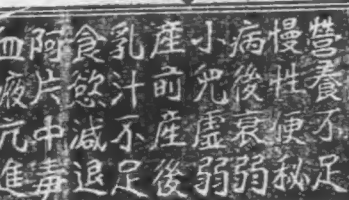 營養不足
慢性便秘
病後衰弱
小兒虛弱
產前產後
乳汁不足
食慾減退
阿片中毒
血液亢進